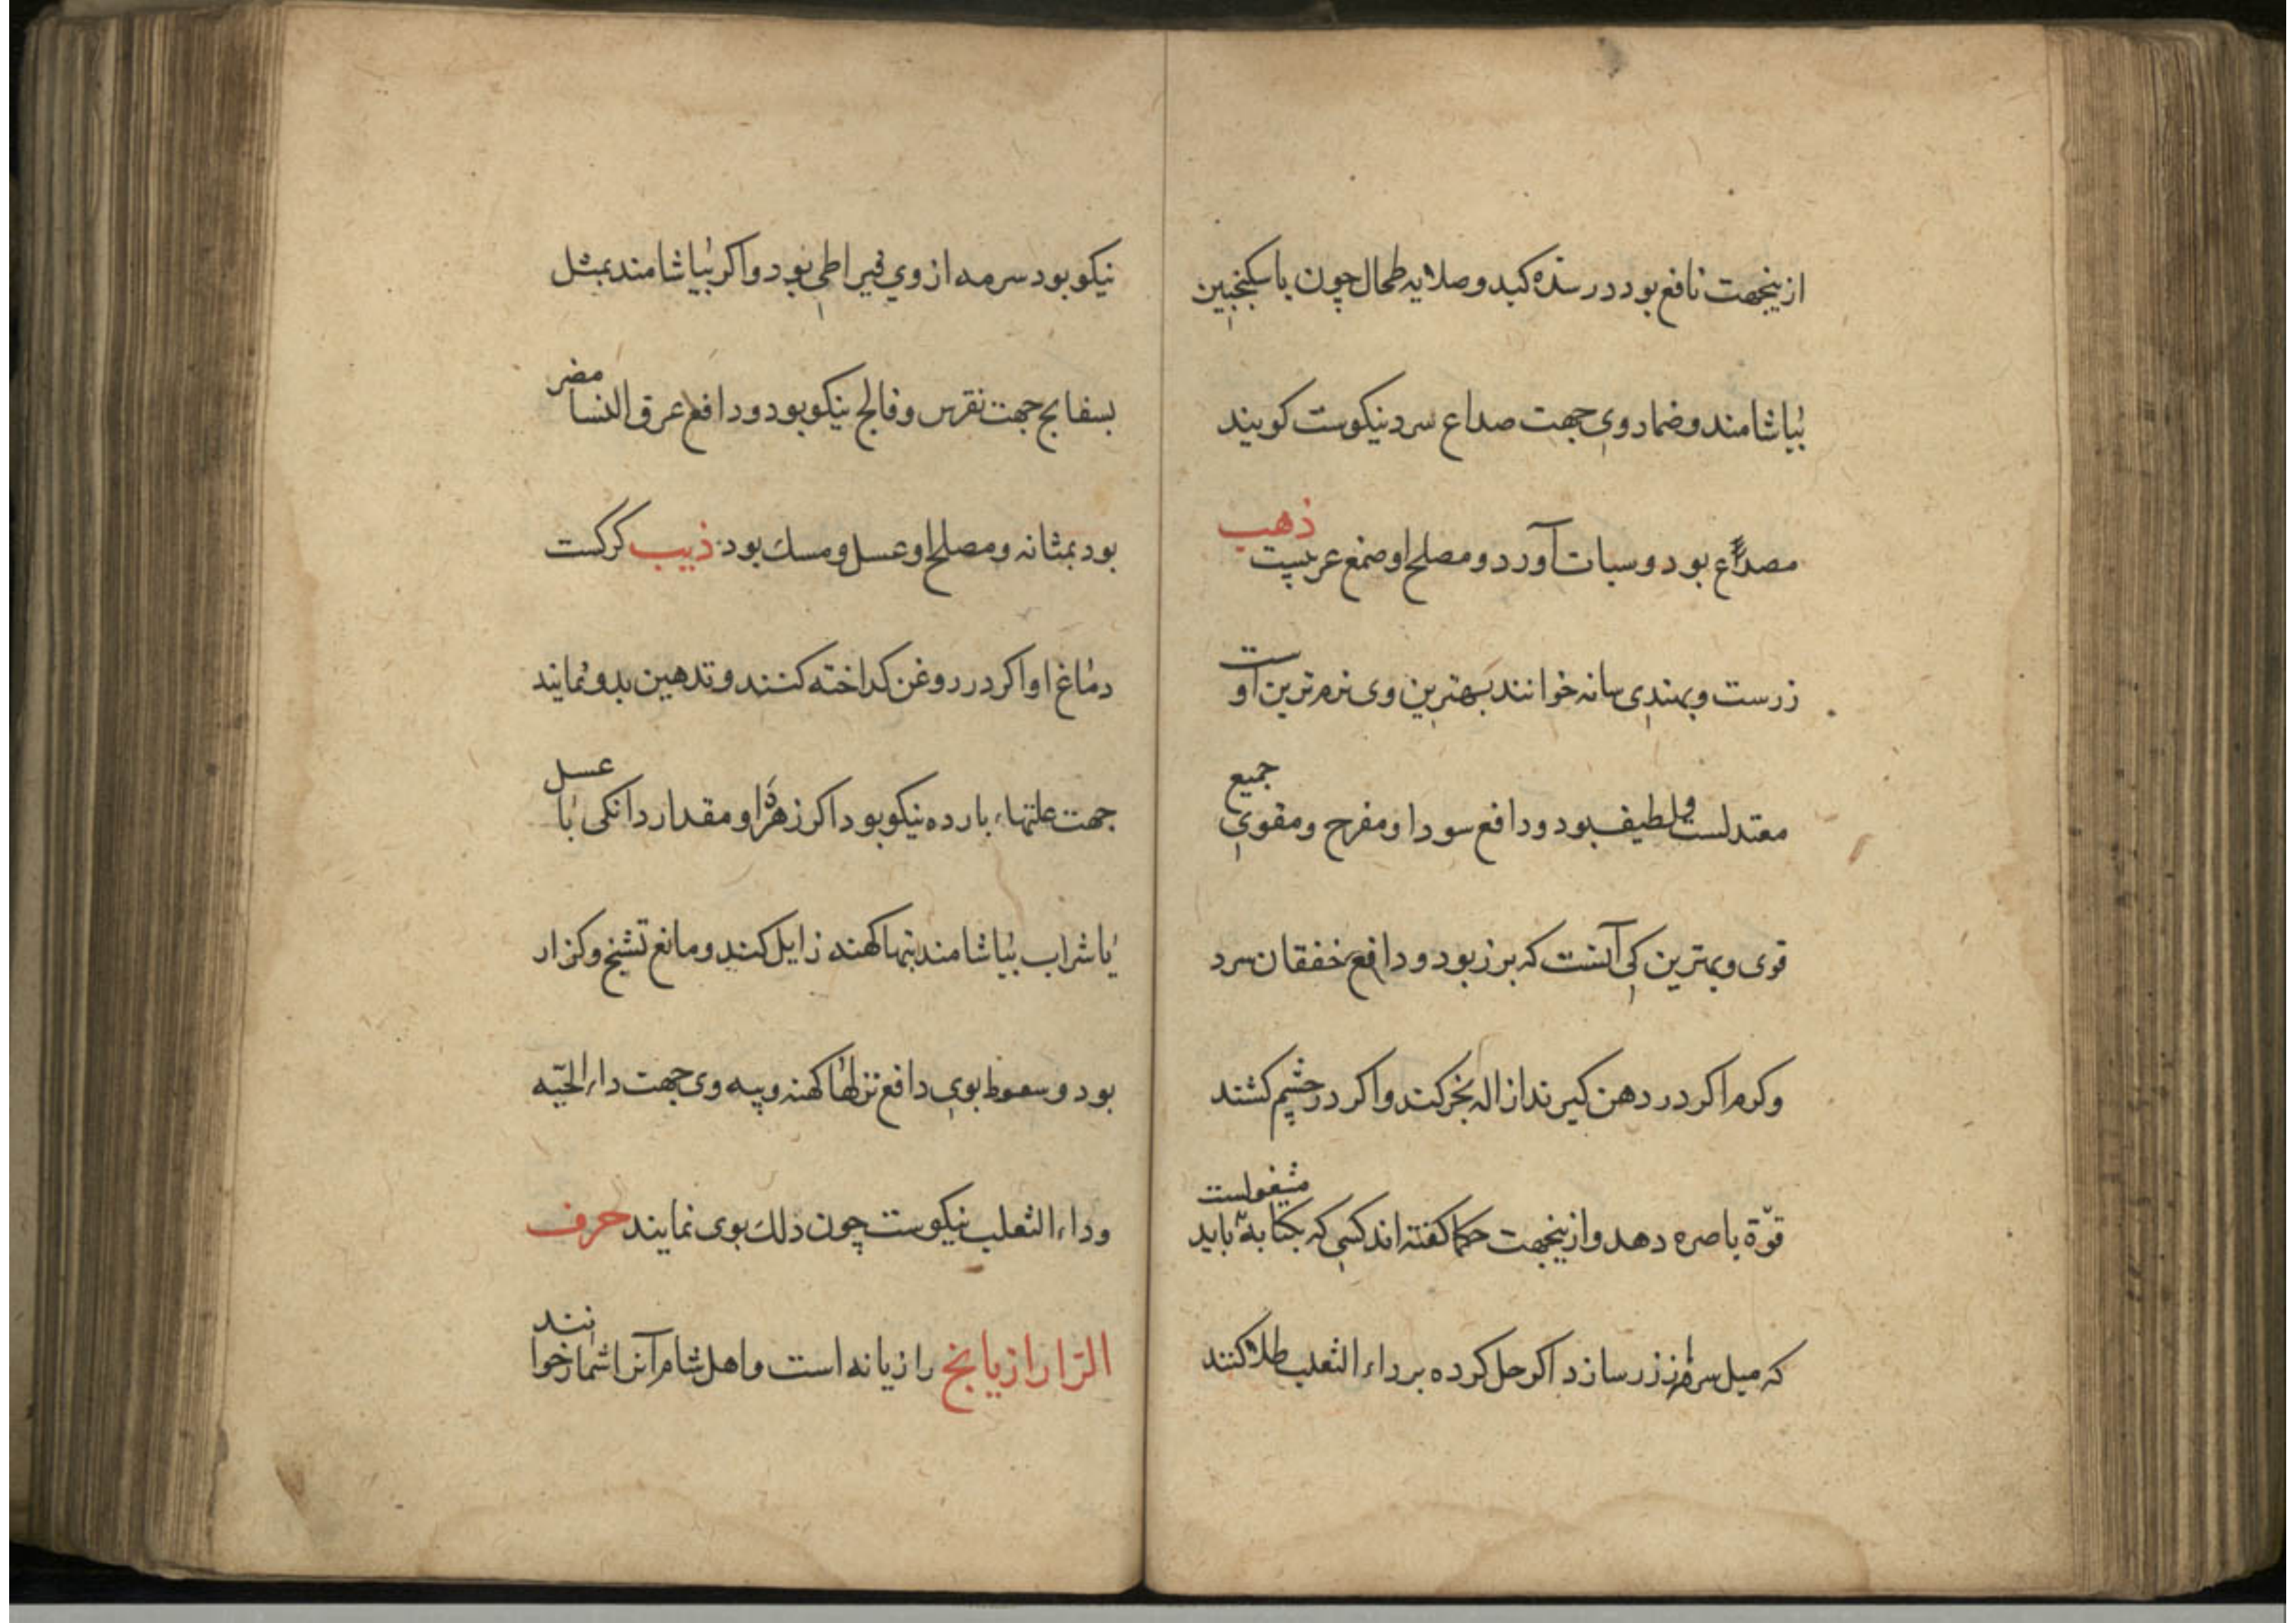 ازینجهت نافع بود در سده کبد و صلابه طحال چون با سکنجبین
بیاشامند و ضماد وی جهت صداع سرد نیکوست کویند
مصدع بود و سبات آورد و مصلح او صمغ عربیست ذهب
زرست و بهندی سانه خوانند بهترین وی نرم ترین اوست
معتدلست و لطیف بود و دافع سودا و مفرح و مقوی جمیع
قوی و بهترین کی آنست که بزر بود و دافع خفقان سرد
وکرم اکر در دهن کیرند ازاله بخر کند و اکر در چشم کشند
قوّة باصره دهد و ازینجهت حکما کفته اند کسی که بکتابة مشغولست باید
که میل سرمه از زر سازد اکر حل کرده بر داء الثعلب طلا کنند
نیکو بود سرمه از وی قیراطی بود و اکر بیاشامند بمثل
بسفایج جهت نقرس و فالج نیکو بود و دافع عرق النسا مضر
بود بمثانه و مصلح او عسل و مسك بود ذیب کرکست
دماغ او اکر در روغن کداخته کنند و تدهین بدو نمایند
جهت علتهاء بارده نیکو بود اکر زهرهٔ او مقدار دانکی با عسل
یا شراب بیاشامند تبها کهنه زایل کند و مانع تشنج و کزار
بود و سعوط بوی دافع نزلها کهنه و پیه وی جهت داء الحیّه
وداء الثعلب نیکوست چون دلك بوی نمایند حرف
الرّا رازیانج رازیانه است و اهل شام آنرا شمار خوانند